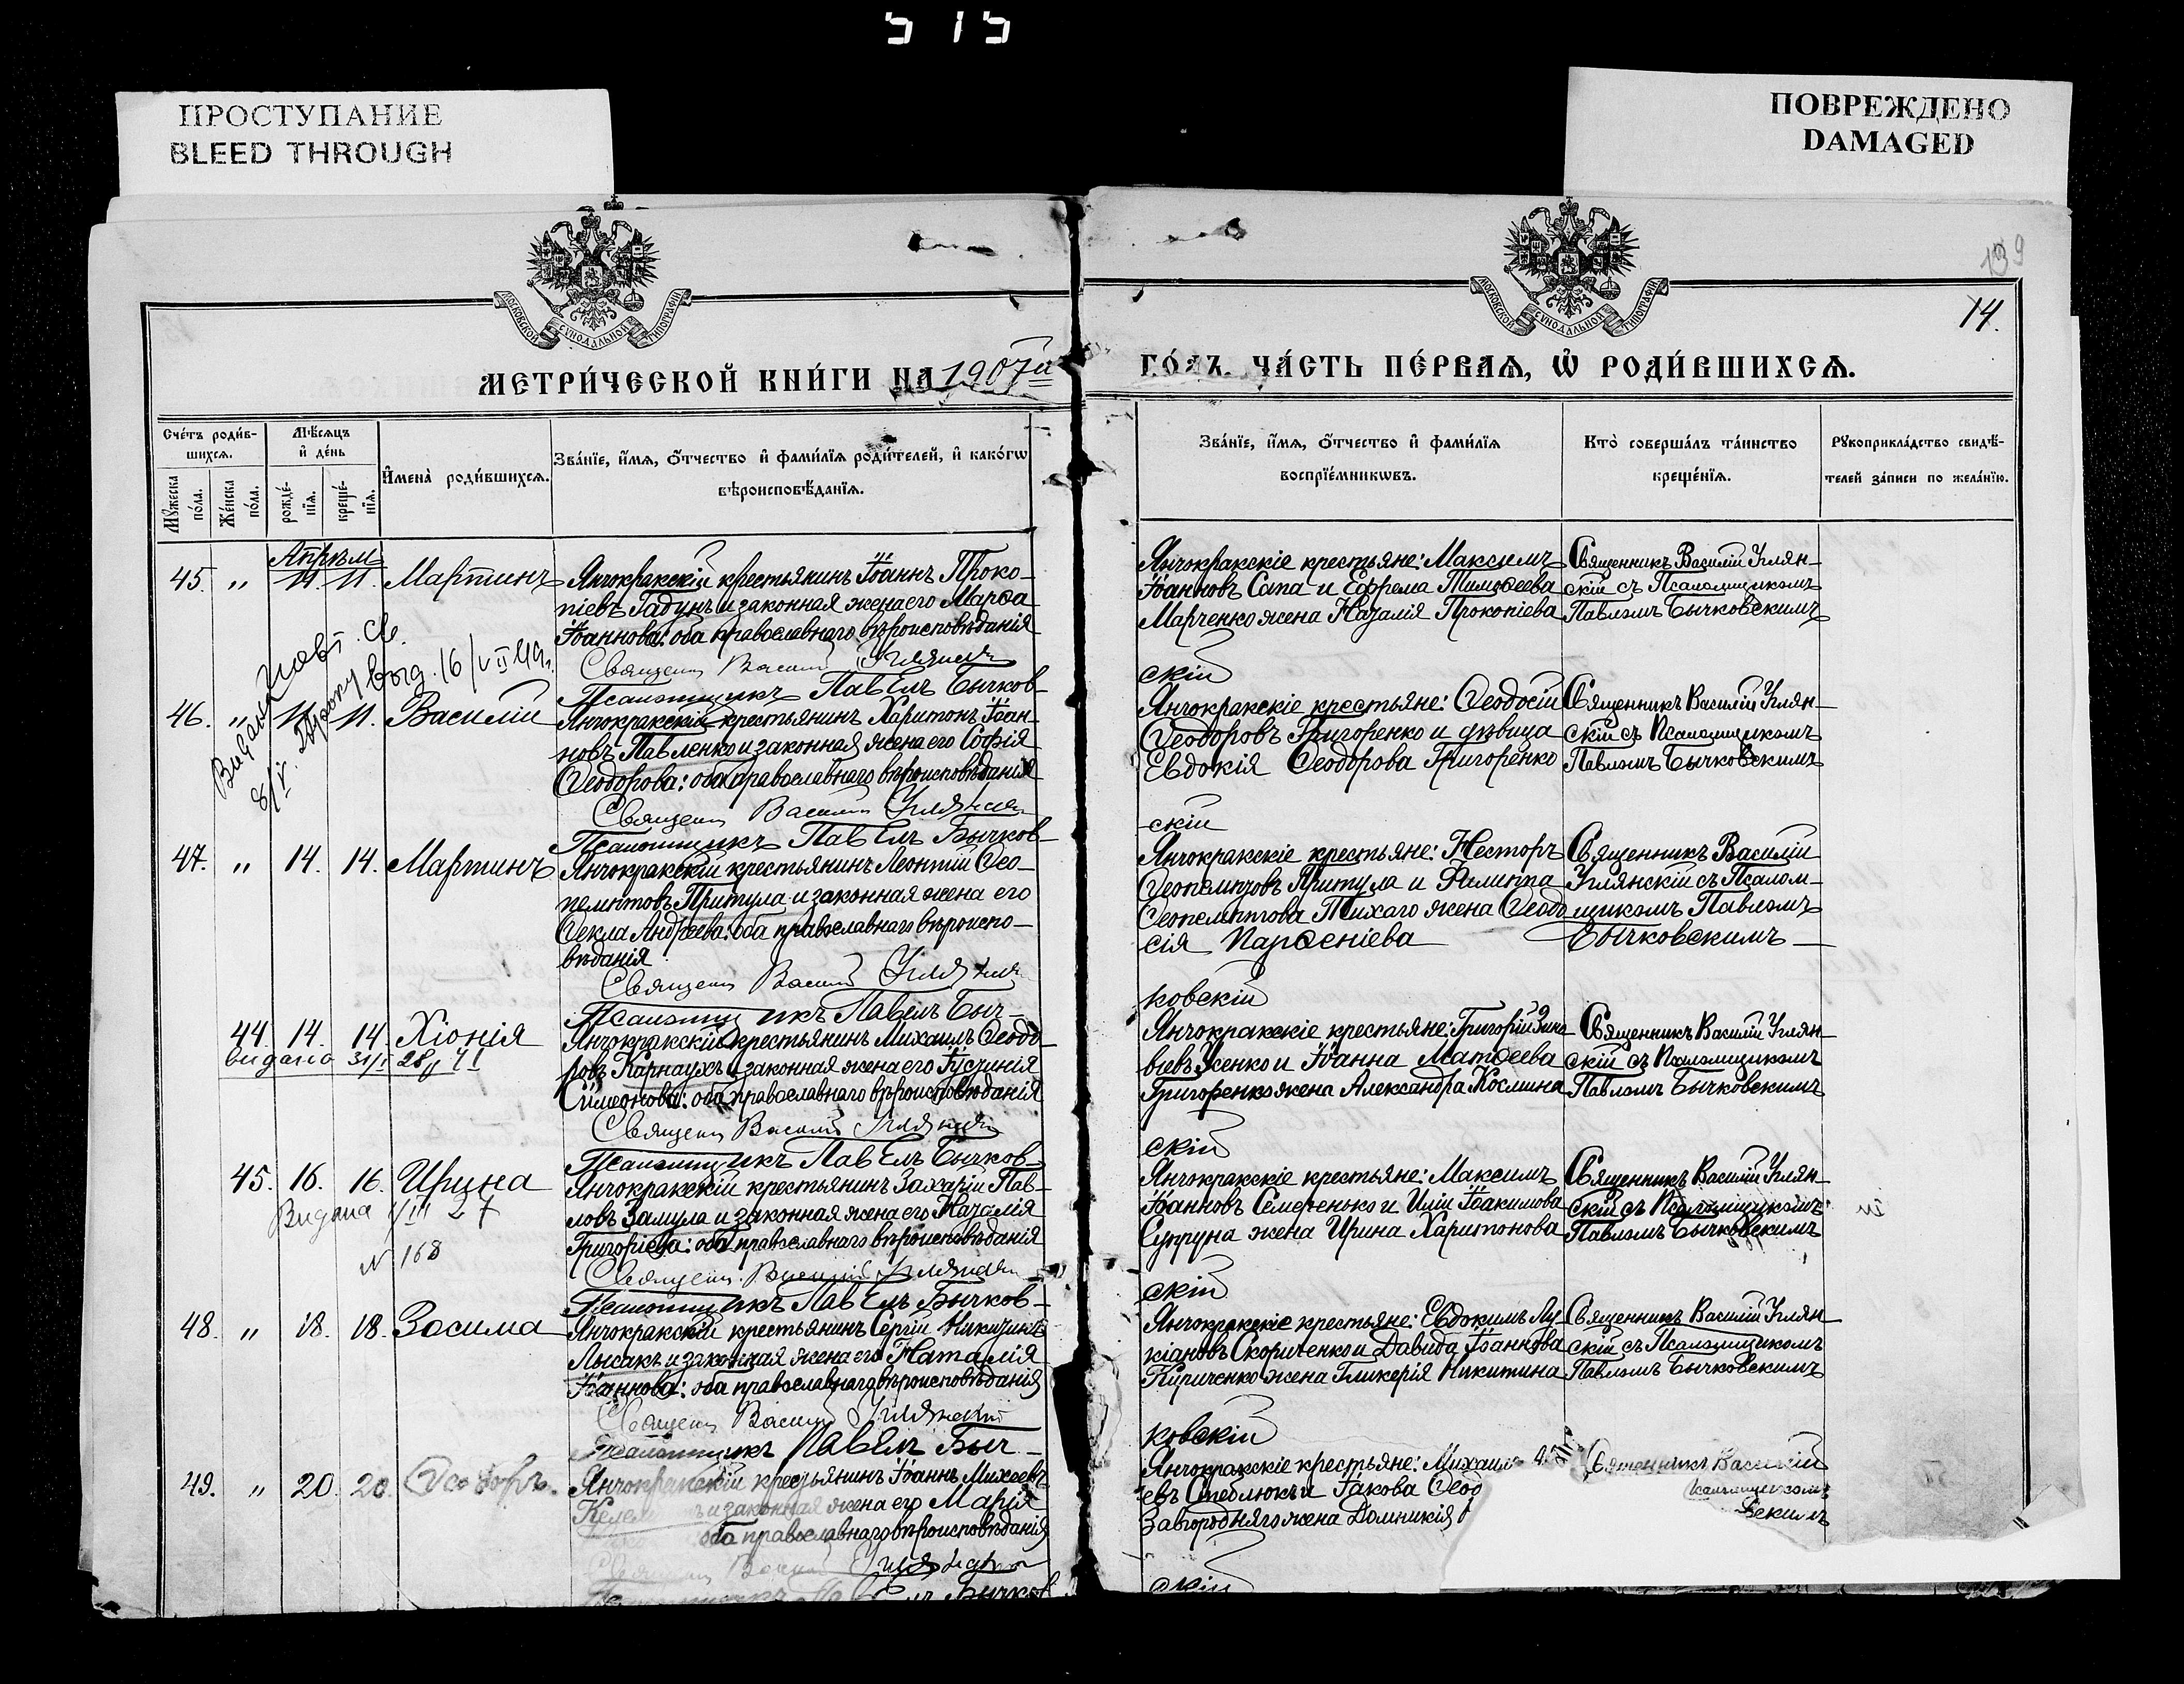 515
ПРОСТУПАНИЕ
BLEED THROUGH
ПОВРЕЖДЕНО
DAMAGED
139
14.
МОСКОВСКОЙ СУНОДАЛЬНОЙ ТИПОГРАФІИ
МОСКОВСКОЙ СУНОДАЛЬНОЙ ТИПОГРАФІИ
МЕТРИ́ЧЕСКОЙ КНИ́ГИ НА 1907й
ГО́ДЪ. ЧА́СТЬ ПЕ́РВАѦ, Ѡ҆ РОДИ́ВШИХСѦ.
Сче́тъ роди́в-
шихсѧ.
Мѣ́сѧцъ
и҆ де́нь
Мꙋ́жеска по́ла.
Же́нска по́ла.
рожде́-
нїѧ.
креще́-
нїѧ.
И҆мена̀ роди́вшихсѧ.
Зва́нїе, и҆́мѧ, ѻ҆́тчество и҆ фами́лїѧ роди́телей, и҆ како́гѡ
вѣроисповѣ́данїѧ.
Зва́нїе, и҆́мѧ, ѻ҆́тчество и҆ фами́лїѧ
воспрїе́мникѡвъ.
Кто̀ соверша́лъ та́инство
креще́нїѧ.
Рꙋкоприкла́дство свидѣ́-
телей за́писи по жела́нїю.
Апрѣль
45. " 11. 11. Мартинъ
Янчокракскій крестьянинъ Іоаннъ Проко-
піевъ Гадунъ и законная жена его Марѳа
Іоаннова: оба православнаго вѣроисповѣданія
Священ Василій Углянскій
Псаломщикъ Павелъ Бычков-
Янчокракскіе крестьяне: Максимъ
Іоанновъ Сапа и Ефрема Тимоѳеева
Марченко жена Наталія Прокопіева
скій
Священникъ Василій Углян-
скій съ Псаломщикомъ
Павломъ Бычковскимъ
46. " 11. 11. Василій
Янчокракскій крестьянинъ Харитонъ Іоан-
новъ Павленко и законная жена его Софія
Ѳеодорова: оба православнаго вѣроисповѣданія
Священ Василій Углянскій
Псаломщикъ Павелъ Бычков-
Янчокракскіе крестьяне: Ѳеодосій
Ѳеодоровъ Григоренко и дѣвица
Евдокія Ѳеодорова Григоренко
скій
Священникъ Василій Углян-
скій съ Псаломщикомъ
Павломъ Бычковскимъ
47. " 14. 14. Мартинъ
Янчокракскій крестьянинъ Леонтій Ѳео-
пемптовъ Притула и законная жена его
Ѳекла Андреева: оба православнаго вѣроиспо-
вѣданія
Священ Василій Углянскій
Псаломщикъ Павелъ Быч-
Янчокракскіе крестьяне: Несторъ
Ѳеопемптовъ Притула и Филиппа
Ѳеопемптова Тихаго жена Ѳеодо
сія Парѳеніева
ковскій
Священникъ Василій
Углянскій съ Псалом-
щикомъ Павломъ
Бычковскимъ
44. 14. 14. Хіонія
видано 31/I 28 41
Янчокракскій крестьянинъ Михаилъ Ѳеодо-
ровъ Карнаухъ и законная жена его Іустинія
Симеонова: оба православнаго вѣроисповѣданія
Священ Василій Углянскій
Псаломщикъ Павелъ Бычков-
Янчокракскіе крестьяне: Григорій Зино
віевъ Усенко и Іоанна Матѳеева
Григоренко жена Александра Космина
скій
Священникъ Василій Углян-
скій съ Псаломщикомъ
Павломъ Бычковскимъ
45. 16. 16. Ирина
Видана III 27
N 168
Янчокракскій крестьянинъ Захарій Пав-
ловъ Замула и законная жена его Наталія
Григоріева: оба православнаго вѣроисповѣданія
Священ. Василій Углянскій
Псаломщикъ Павелъ Бычков-
Янчокракскіе крестьяне: Максимъ
Іоанновъ Семеренько и Иліи Іоакимова
Супруна жена Ирина Харитонова
скій
Священникъ Василій Углян-
скій съ Псаломщикомъ
Павломъ Бычковскимъ
48. " 18. 18. Зосима
Янчокракскій крестьянинъ Сергій Никитинъ
Лысакъ и законная жена его Наталія
Іоаннова: оба православнаго вѣроисповѣданія
Священ Василій Углянскій
Псаломщикъ Павелъ Быч-
Янчокракскіе крестьяне: Евдокимъ Лу-
кіановъ Скориченко и Давида Іоаннова
Кириченко жена Гликерія Никитина
ковскій
Священникъ Василій Углян-
скій съ Псаломщикомъ
Павломъ Бычковскимъ
49. " 20. 20. Ѳеодоръ.
Янчокракскій крестьянинъ Іоаннъ Михеевъ
и законная жена его Марія
оба православнаго вѣроисповѣданія
Священ Василій Углянскій
Бычков
Янчокракскіе крестьяне: Михаилъ
евъ Стеблюкъ и Іакова Ѳеод
Завгородняго жена Домникія
скій
Священникъ Василій
Псаломщикомъ
скимъ